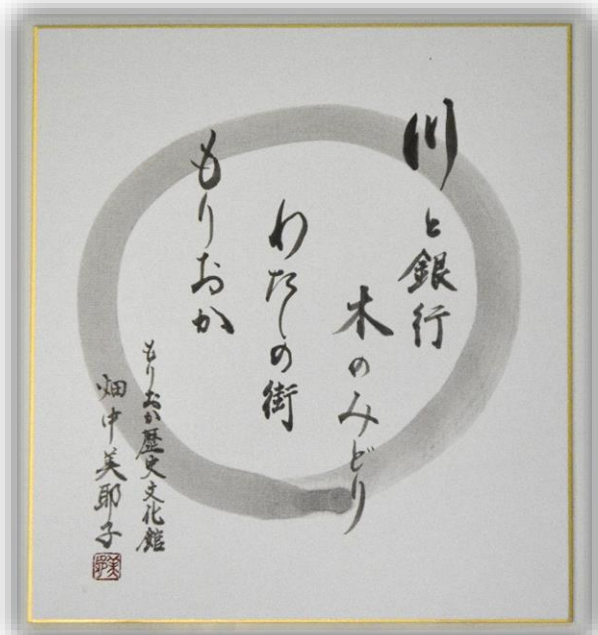 川と銀行
木のみどり
わたしの街
もりおか
もりおか歴史文化館
畑中美耶子